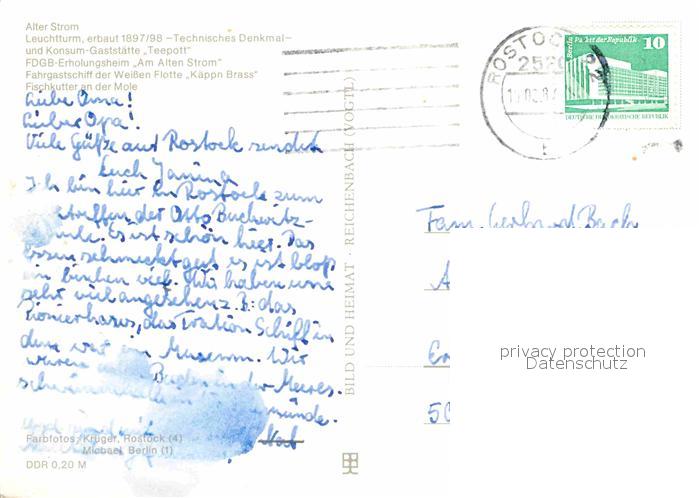 Alter Strom
Leuchtturm, erbaut 1897/98 –Technisches Denkmal–
und Konsum-Gaststätte „Teepott"
FDGB-Erholungsheim „Am Alten Strom"
Fahrgastschiff der Weißen Flotte „Käppn Brass"
Fischkutter an der Mole
Liebe Oma!
Lieber Opa!
Viele Grüße aus Rostock sendet
Euch Janina
Ich bin hier in Rostock zum
treffen der Otto Buchwitz-
Es ist schön hier. Das
Essen schmeckt gut es ist bloß
ein bischen viel. Wir haben uns
sehr viel angesehen z. B: das
Pionierhaus, das Tration Schiff in
dem war ein Museum. Wir
waren Baden in der Meeres.
münde.
Farbfotos: Krüger, Rostock (4)
Michael, Berlin (1)
DDR 0,20 M
BILD UND HEIMAT · REICHENBACH (VOGTL)
ROSTOCK
252
Berlin Palast der Republik
10
DEUTSCHE DEMOKRATISCHE REPUBLIK
Fam. Gerhard Bach
A
50
privacy protection
Datenschutz